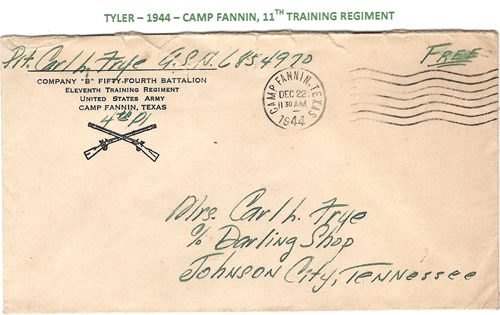 TYLER – 1944 – CAMP FANNIN, 11TH TRAINING REGIMENT
Pvt. Carl L. Frye A.S.N. 6854970
Free
COMPANY "B" FIFTY-FOURTH BATTALION
ELEVENTH TRAINING REGIMENT
UNITED STATES ARMY
CAMP FANNIN, TEXAS
4th Pl
CAMP FANNIN, TEXAS
DEC 22
11 30 AM
1944
Mrs. Carl L. Frye
% Darling Shop
Johnson City, Tennessee